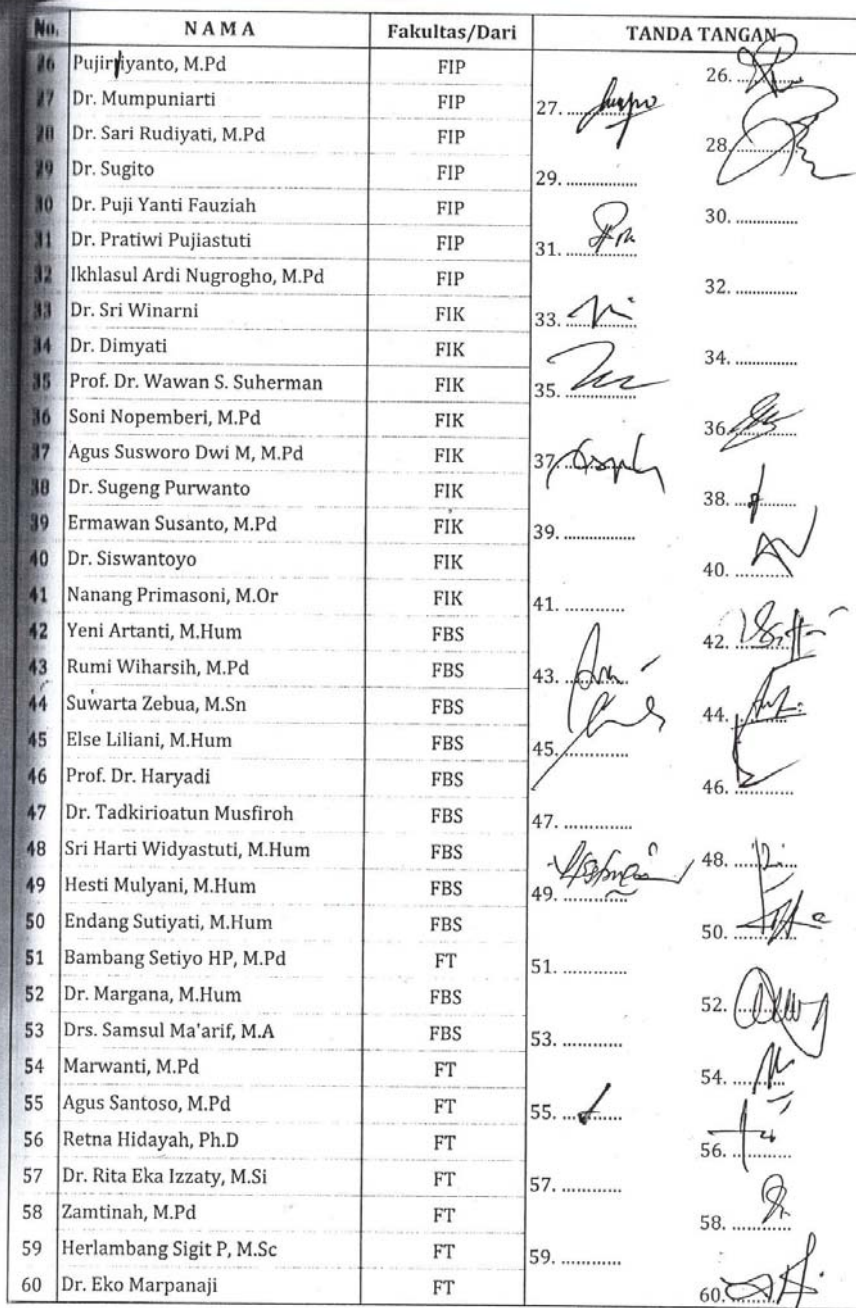 No. N A M A Fakultas/Dari TANDA TANGAN
26 Pujirriyanto, M.Pd FIP 26. ............
27 Dr. Mumpuniarti FIP 27. ............
28 Dr. Sari Rudiyati, M.Pd FIP 28. ............
29 Dr. Sugito FIP 29. ............
30 Dr. Puji Yanti Fauziah FIP 30. ............
31 Dr. Pratiwi Pujiastuti FIP 31. ............
32 Ikhlasul Ardi Nugrogho, M.Pd FIP 32. ............
33 Dr. Sri Winarni FIK 33. ............
34 Dr. Dimyati FIK 34. ............
35 Prof. Dr. Wawan S. Suherman FIK 35. ............
36 Soni Nopemberi, M.Pd FIK 36. ............
37 Agus Susworo Dwi M, M.Pd FIK 37. ............
38 Dr. Sugeng Purwanto FIK 38. ............
39 Ermawan Susanto, M.Pd FIK 39. ............
40 Dr. Siswantoyo FIK 40. ............
41 Nanang Primasoni, M.Or FIK 41. ............
42 Yeni Artanti, M.Hum FBS 42. ............
43 Rumi Wiharsih, M.Pd FBS 43. ............
44 Suwarta Zebua, M.Sn FBS 44. ............
45 Else Liliani, M.Hum FBS 45. ............
46 Prof. Dr. Haryadi FBS 46. ............
47 Dr. Tadkirioatun Musfiroh FBS 47. ............
48 Sri Harti Widyastuti, M.Hum FBS 48. ............
49 Hesti Mulyani, M.Hum FBS 49. ............
50 Endang Sutiyati, M.Hum FBS 50. ............
51 Bambang Setiyo HP, M.Pd FT 51. ............
52 Dr. Margana, M.Hum FBS 52. ............
53 Drs. Samsul Ma'arif, M.A FBS 53. ............
54 Marwanti, M.Pd FT 54. ............
55 Agus Santoso, M.Pd FT 55. ............
56 Retna Hidayah, Ph.D FT 56. ............
57 Dr. Rita Eka Izzaty, M.Si FT 57. ............
58 Zamtinah, M.Pd FT 58. ............
59 Herlambang Sigit P, M.Sc FT 59. ............
60 Dr. Eko Marpanaji FT 60. ............